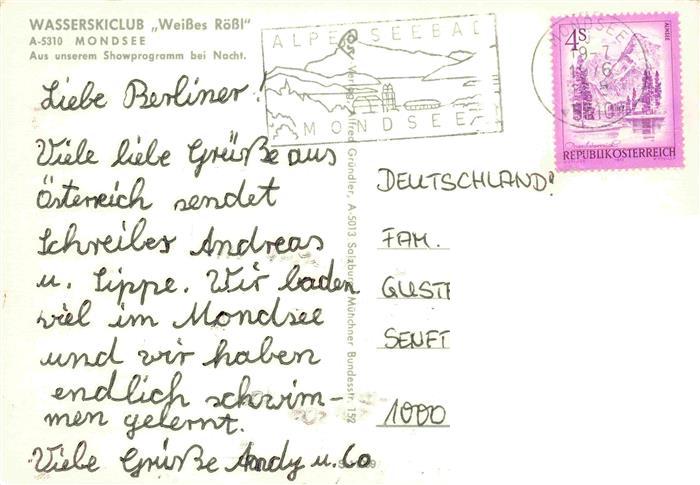 WASSERSKICLUB „Weißes Rößl"
A-5310 MONDSEE
Aus unserem Showprogramm bei Nacht.
Liebe Berliner!
Viele liebe Grüße aus
Österreich sendet
Schreiber Andreas
u. Sippe. Wir baden
viel im Mondsee
und wir haben
endlich schwim-
men gelernt.
Viele Grüße Andy u. Co
ALPENSEEBAD
MONDSEE
Verlag Alfred Gründler, A-5013 Salzburg, Münchner Bundesstr. 152
4S
ALMSEE
REPUBLIK ÖSTERREICH
MONDSEE
DEUTSCHLAND!
FAM.
GUST
SENFT
1000